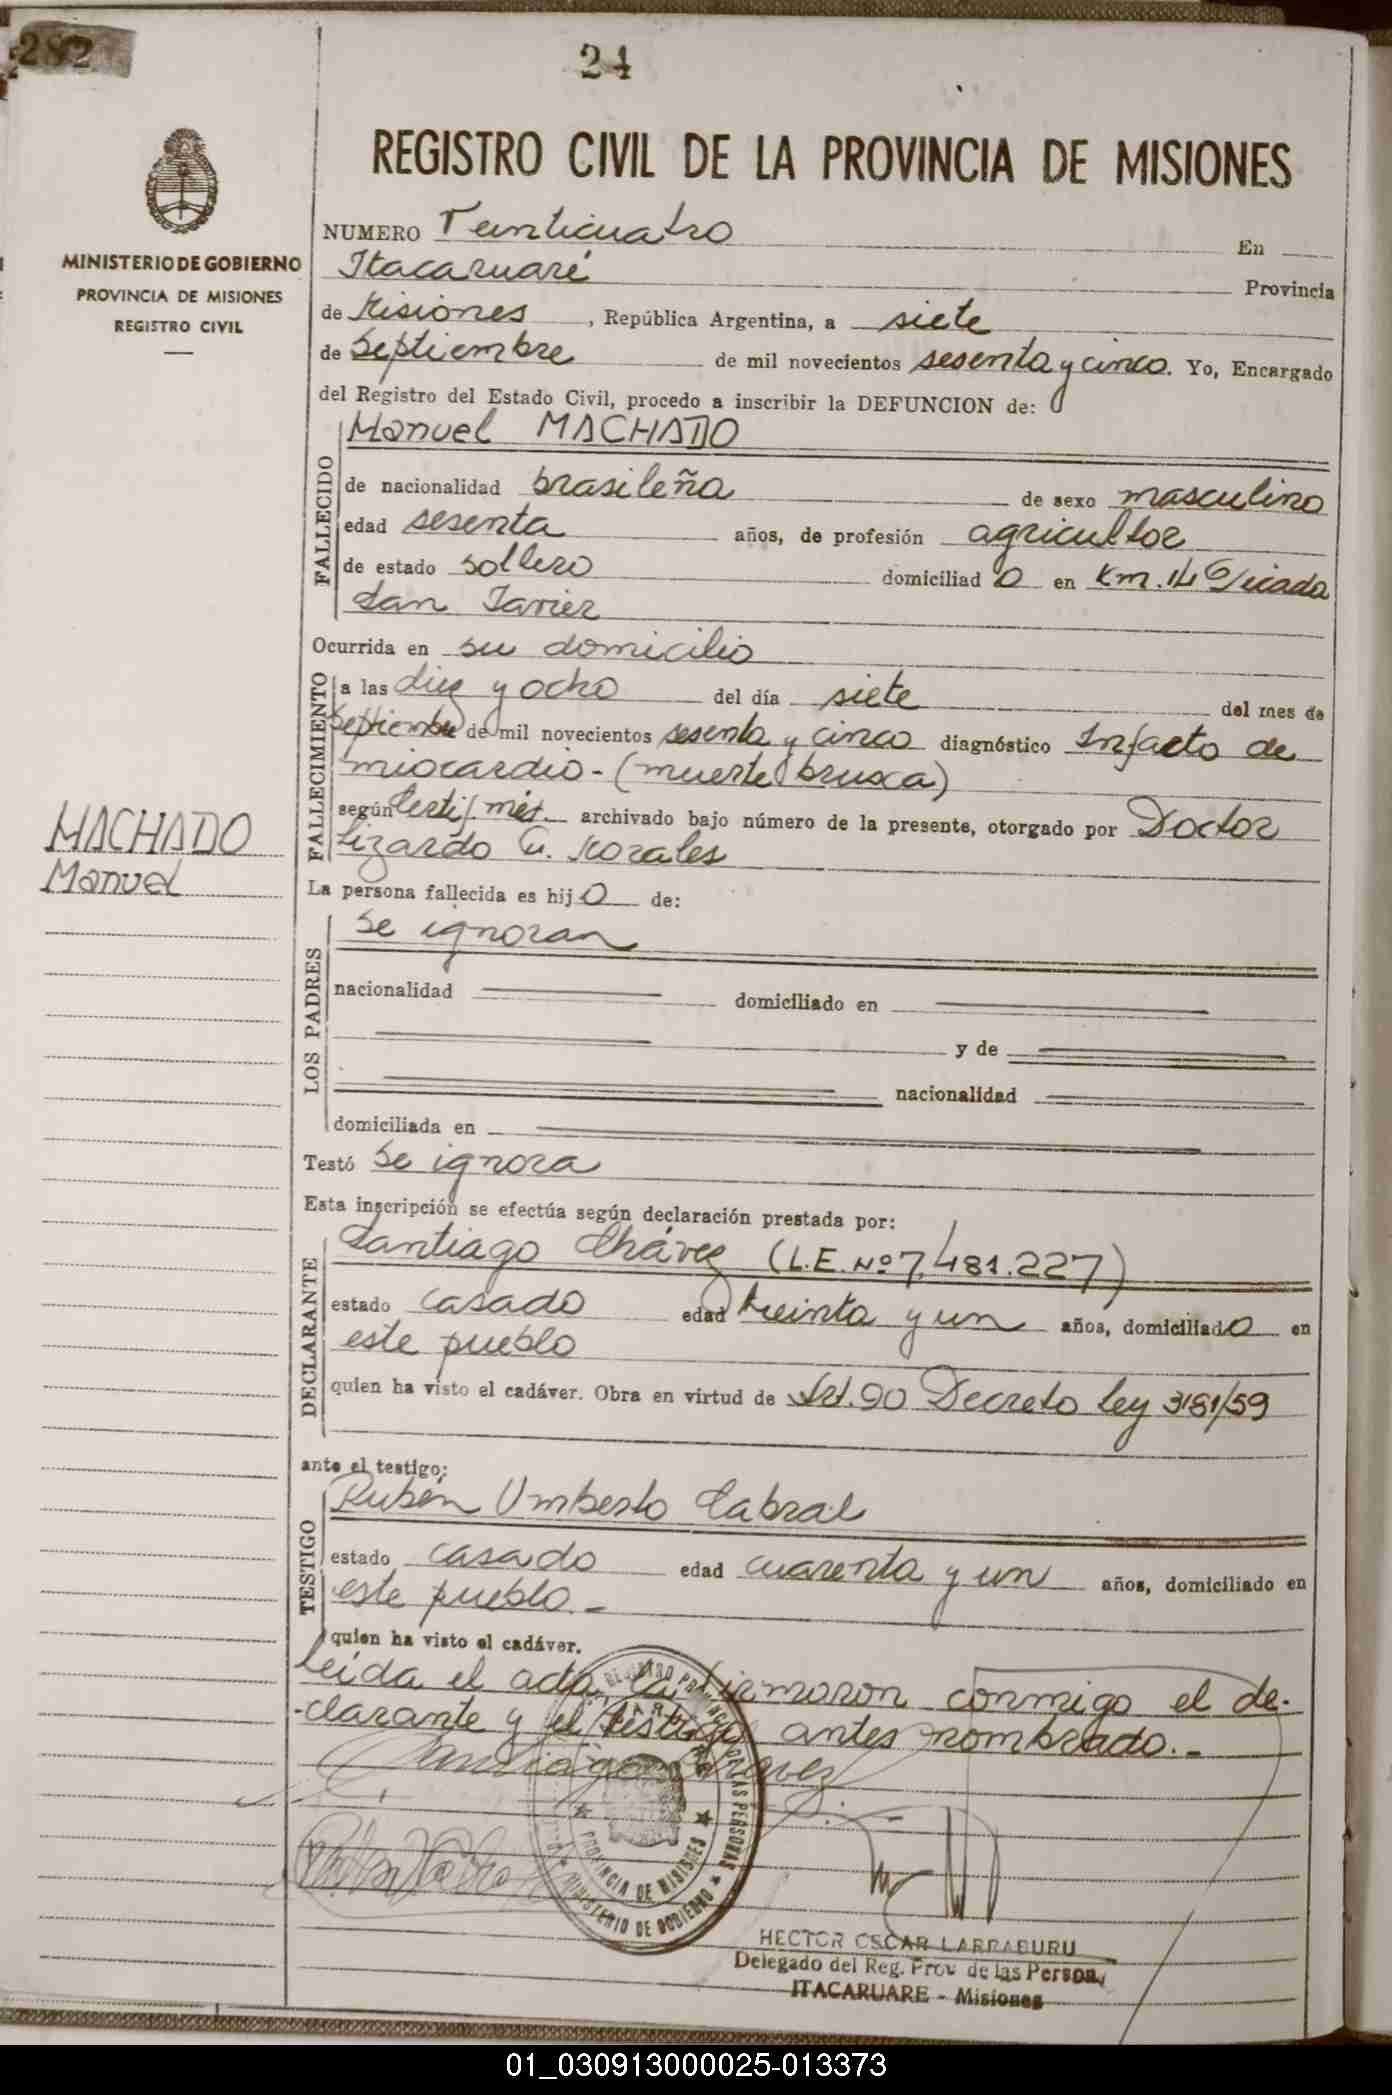 282
24
REGISTRO CIVIL DE LA PROVINCIA DE MISIONES
MINISTERIO DE GOBIERNO
PROVINCIA DE MISIONES
REGISTRO CIVIL
NUMERO Veinticuatro En
Itacaruaré Provincia
de Misiones, República Argentina, a siete
de Septiembre de mil novecientos sesenta y cinco. Yo, Encargado
del Registro del Estado Civil, procedo a inscribir la DEFUNCION de:
FALLECIDO
Manuel MACHADO
de nacionalidad brasileña de sexo masculino
edad sesenta años, de profesión agricultor
de estado soltero domiciliad o en Km. 14 Picada
San Javier
Ocurrida en su domicilio
FALLECIMIENTO
a las diez y ocho del día siete del mes de
Septiembre de mil novecientos sesenta y cinco diagnóstico Infacto de
miocardio - (muerte brusca)
según certif. méd. archivado bajo número de la presente, otorgado por Doctor
Lizardo G. Morales
MACHADO
Manuel
La persona fallecida es hij o de:
LOS PADRES
Se ignoran
nacionalidad domiciliado en
y de
nacionalidad
domiciliada en
Testó Se ignora
Esta inscripción se efectúa según declaración prestada por:
DECLARANTE
Santiago Chávez (L.E. Nº 7.481.227)
estado casado edad treinta y un años, domiciliado en
este pueblo
quien ha visto el cadáver. Obra en virtud de Art. 90 Decreto Ley 3181/59
ante el testigo:
TESTIGO
Rubén Umberto Cabral
estado casado edad cuarenta y un años, domiciliado en
este pueblo.-
quien ha visto el cadáver.
Leída el acta, la firmaron conmigo el de-
-clarante y el testigo antes nombrado.-
Santiago Chavez
REGISTRO PROVINCIAL DE LAS PERSONAS
MINISTERIO DE GOBIERNO
PROVINCIA DE MISIONES
HECTOR OSCAR LARRABURU
Delegado del Reg. Prov de las Person.
ITACARUARE - Misiones
01_030913000025-013373